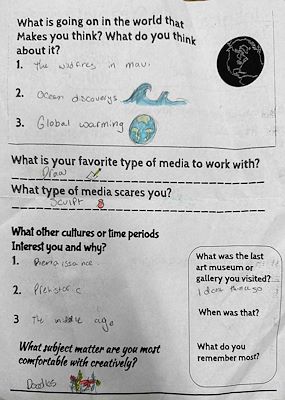 What is going on in the world that
Makes you think? What do you think
about it?
1. The wildfires in maui
2. Ocean discoverys
3. Global warming
What is your favorite type of media to work with?
Draw
What type of media scares you?
Sculpt
What other cultures or time periods
Interest you and why?
1. Renaissance
2. Prehistoric
3 The middle age
What subject matter are you most
comfortable with creatively?
Doodles
What was the last
art museum or
gallery you visited?
I dont
When was that?
What do you
remember most?